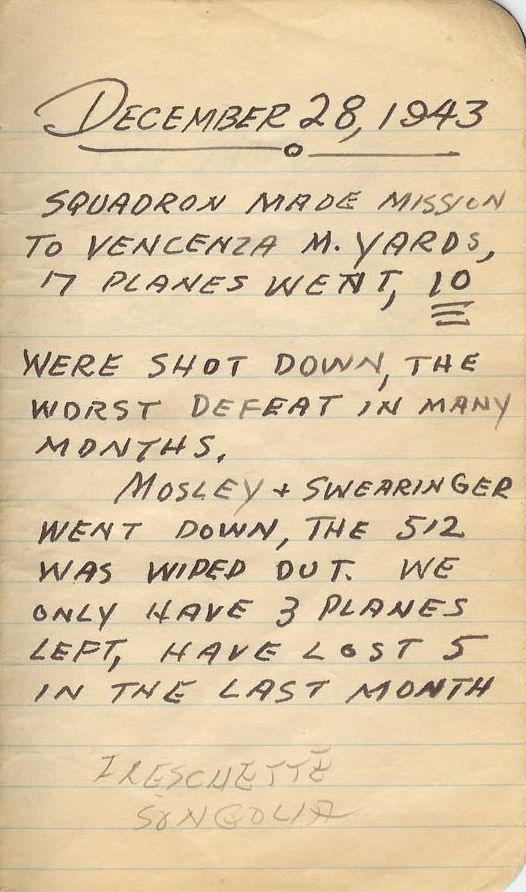 DECEMBER 28, 1943
SQUADRON MADE MISSION
TO VENCENZA M. YARDS,
17 PLANES WENT, 10
WERE SHOT DOWN, THE
WORST DEFEAT IN MANY
MONTHS.
MOSLEY + SWEARINGER
WENT DOWN, THE 512
WAS WIPED OUT. WE
ONLY HAVE 3 PLANES
LEFT, HAVE LOST 5
IN THE LAST MONTH